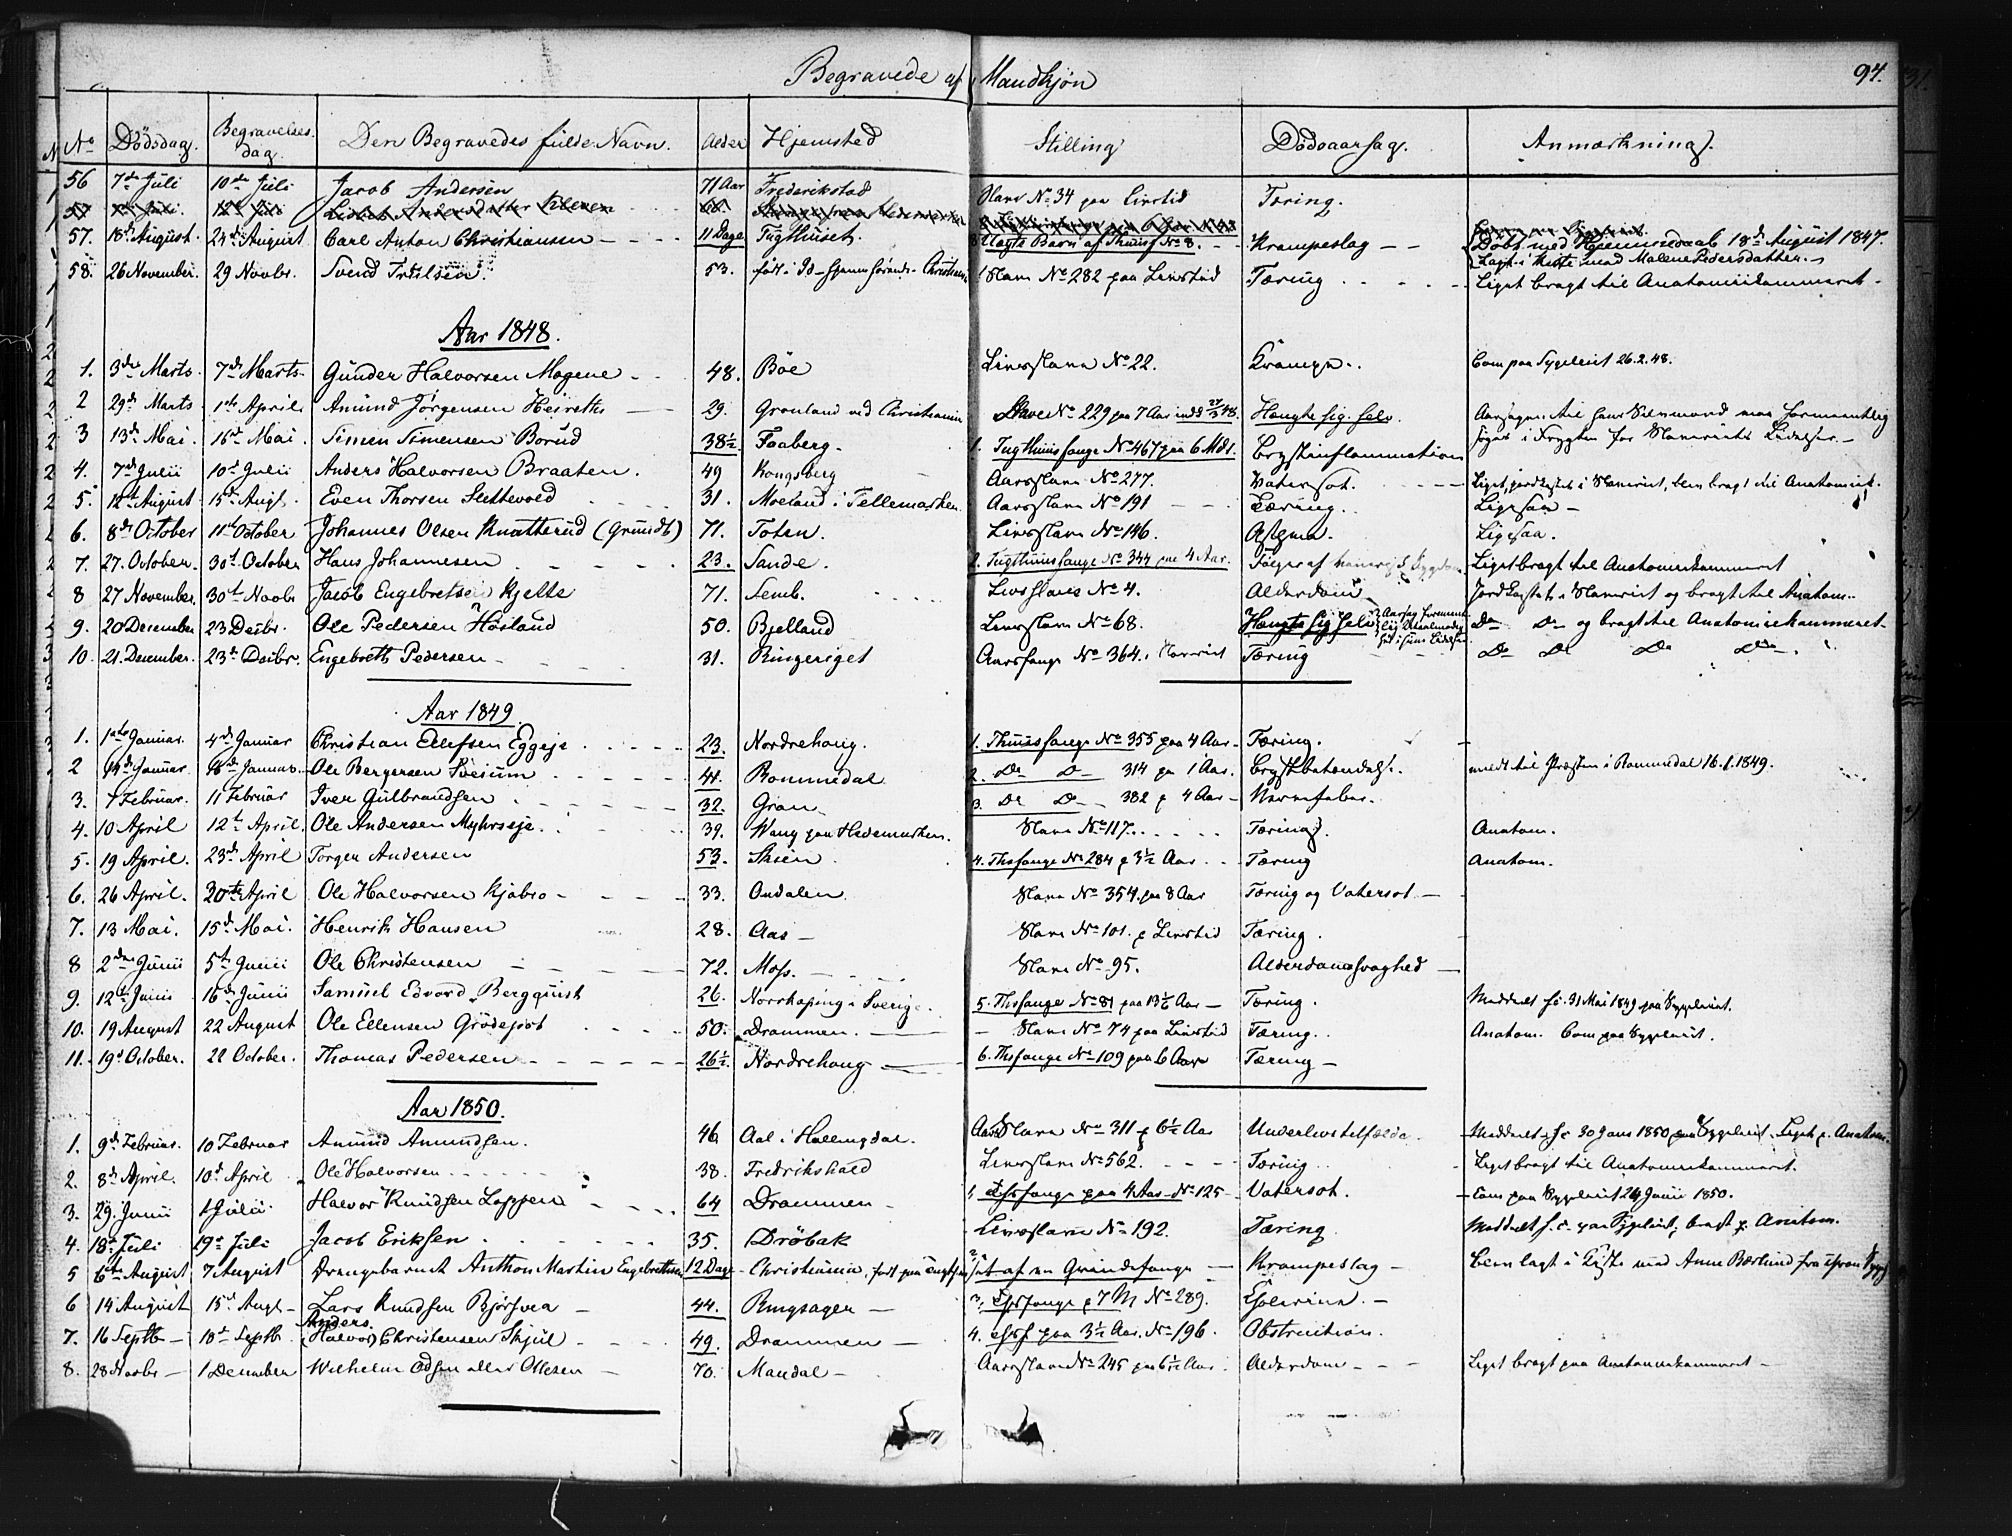 Begravede af Mandkjøn 94.
No Dödsdag. Begravelses dag. Den Begravedes fulde Navn. Alder Hjemsted Stilling Dödsaarsag. Anmærkning.
56 7de Juli 10de Juli Jacob Andersen 71 Aar Frederikstad Slave No 34 paa Livstid Tæring.
57. 18de August. 24de August Carl Anton Christiansen 11 Dage Tugthuset. Barn af Thusf No 8. Krampeslag Döbt med Hjemmedaab 18de August 1847.
Lagt i Kiste med Malene Pedersdatter.
58. 26 November. 29 Novbr. Svend Truilsen. 53. födt i Id Slave No 282 paa Livstid Tæring Liget bragt til Anatomiekammeret.
Aar 1848.
1. 3die Marts. 7de Marts. Gunder Halvorsen Mogene 48. Böe Livsslave No 22. Krampe. Kom paa Sygeleiet 26.2.48.
2 29de Marts 1ste April. Amund Jörgensen Heireths 29. Grønland ved Christiania Slave No 229 paa 7 Aar Hængte sig selv. Aarsagen til hans Selvmord maa formeentlig
3 13de Mai. 16de Mai. Simen Simensen Borud 38½ Faaberg. 1. Tugthuusfange No 467 paa 6 Mdr. Brystinflammation søges i Frygten for Slaveriets Lidelser.
4. 7de Julii 10de Julii Anders Halvorsen Braaten. 49 Kongsberg Aarsslave No 277. Vatersot. Liget jordfæstet i Slaveriet, blev bragt til Anatomiet.
5. 12te August 15de Augt. Even Thorsen Slettevold 31. Moeland i Tellemarken Aarsslave No 191 Tæring. Ligesaa
6. 8de October 11te October Johannes Olsen Knatterud (Grundt) 71. Toten. Livsslave No 146. Astma. Ligesaa.
7. 27. October. 30te October Hans Johannesen 23. Sande. 2. Tugthuusfange No 344 paa 4 Aar. Følger af venerisk Sygdom Liget bragt til Anatomiekammeret
8 27 November. 30te Novbr Jacob Engebretsen Kjelte 71. Semb. Livsslave No 4. Alderdom Jordfæstet i Slaveriet og bragt til Anatom.
9. 20 December 23 Decbr. Ole Pedersen Hösland 50. Bjelland Livsslave No 68. Hængte sig selv Do Do og bragt til Anatomiekammeret
10. 21. December. 23de Decbr. Engebreth Pedersen 31. Ringeriget Aarsfange No 364. i Slaveriet Tæring Do Do Do Do
Aar 1849.
1. 1ste Januar. 4de Januar Christian Ellefsen Eggeje 23. Nordrehoug. 1. Thuusfange No 355 paa 4 Aar Tæring.
2 14de Januar 16de Januar. Ole Bergersen Sveium 41. Rommedal 2. Do Do 314 paa 1 Aar. Brystbetændelse. meldt til Præsten i Rommedal 16.1.1849.
3. 7 Februar. 11 Februar Iver Gulbrandsen 32. Gran 3. Do Do 382 p 4 Aar Nervefeber.
4. 10 April 12te April. Ole Andersen Myhrseje. 39. Vang paa Hedemarken. Slave No 117. Tæring. Anatom.
5. 19 April. 23de April Torger Andersen 53. Skien. 4. Thsfange No 284 p 3½ Aar. Tæring Anatom.
6. 26 April. 30te April Ole Halvorsen Kjøbro 33. Ourdalen Slave No 354. paa 8 Aar Tæring og Vatersot
7. 13 Mai. 15de Mai. Henrik Hansen 28. Aas Slave No 101. p Livstid Tæring.
8 2den Junii 5te Junii Ole Christensen 72. Moss. Slave No 95. Alderdomssvaghed
9. 12te Junii 16de Junii Samuel Edvard Bergquist 26. Norrkøping i Sverige. 5. Thsfange No 81 paa 13 1/6 Aar Tæring. Meddeelt s. c. 31 Mai 1849 paa Sygeleiet.
10. 19 August 22 August Ole Ellensen Grödejord 50. Drammen. Slave No 74 paa Livstid Tæring. Anatom. Com paa Sygeleiet.
11. 19de October. 22 October. Thomas Pedersen 26½. Nordrehoug 6. Thsfange No 109 paa 6 Aar Tæring
Aar 1850.
1. 9de Februar. 10 Februar Amund Amundsen. 46 Aal i Hallingdal. Aarsslave No 311 p 6½ Aar Underlivstilfælde. Meddeelt s c 30 Janr 1850 paa Sygeleiet. Liget p. Anatom.
2. 8de April. 10de April Ole Halvorsen 38. Fredrikshald Livsslave No 562. Tæring Liget bragt til Anatomiekammeret.
3. 29. Junii 1 Julii. Halvor Knudsen Lappen 64 Drammen 1. Thsfange paa 4 Aar No 125 Vatersot. Com paa Sygeleiet 24 Junii 1850.
4. 18de Juli 19de Juli Jacob Eriksen 35. Dröbak Livsslave No 192. Tæring Meddeelt s. c. paa Sygeleiet, bragt p. Anatom.
5 6te August 7 August Drengebarnet Anthon Martin Engebretsen 12 Dage Christiania, født paa Tugthuset af en Qvindefange Krampeslag Blev lagt i Kiste med Anne Bærlund fra
6 14 August 15de Augt Lars Knudsen Björsvea 44. Ringsager 3. Thsfange p 7 M No 289. Cholerine.
7. 16 Septb 18de Septb Anders (Halvor) Christensen Skjul 49. Drammen 4. Thsf paa 3½ Aar. No 196. Obstruction.
8. 28 Novbr 1 December Wilhelm Odsen eller Ottesen 70. Mandal Aarsslave No 245 paa 6½ Aar. Alderdom Liget bragt paa Anatomiekammeret